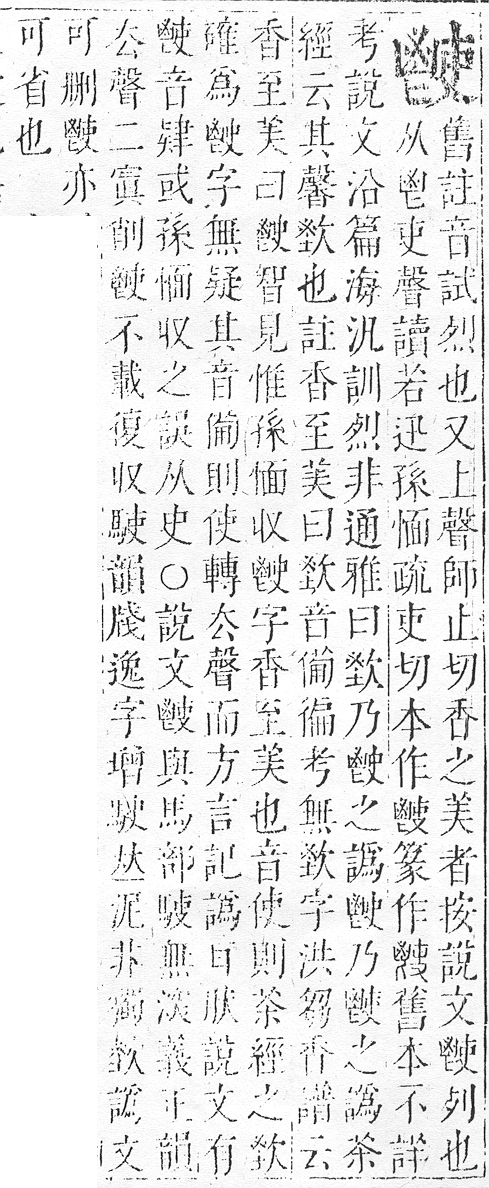 舊註音試烈也又上聲師止切香之美者按說文列也
从鬯吏聲讀若迅孫愐疏吏切本作篆作舊本不詳
考說文沿篇海汎訓烈非通雅曰乃之譌乃之譌茶
經云其馨也註香至美曰音備徧考無字洪芻香譜云
香至美曰智見惟孫愐收字香至美也音使則茶經之
確爲字無疑其音備則使轉厺聲而方言記譌耳肰說文有
音肄或孫愐収之誤从史○說文與馬部駛無深義正韻
厺聲二寘削不載復収駛韻牋逸字增駛𠀤泥非獨譌文
可刪亦
可省也